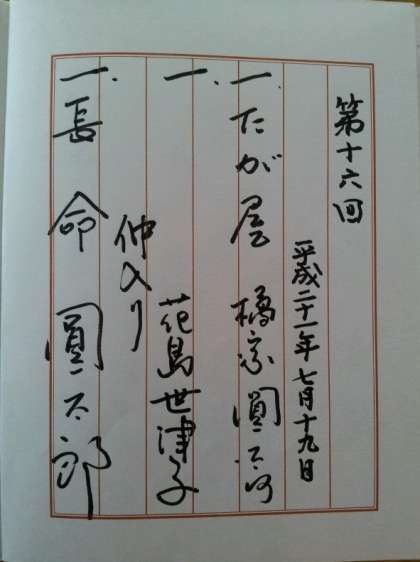 第十六回
平成二十一年七月十九日
一、たが屋 橘家圓太郎
一、 花島世津子
仲入り
一、長命 圓太郎